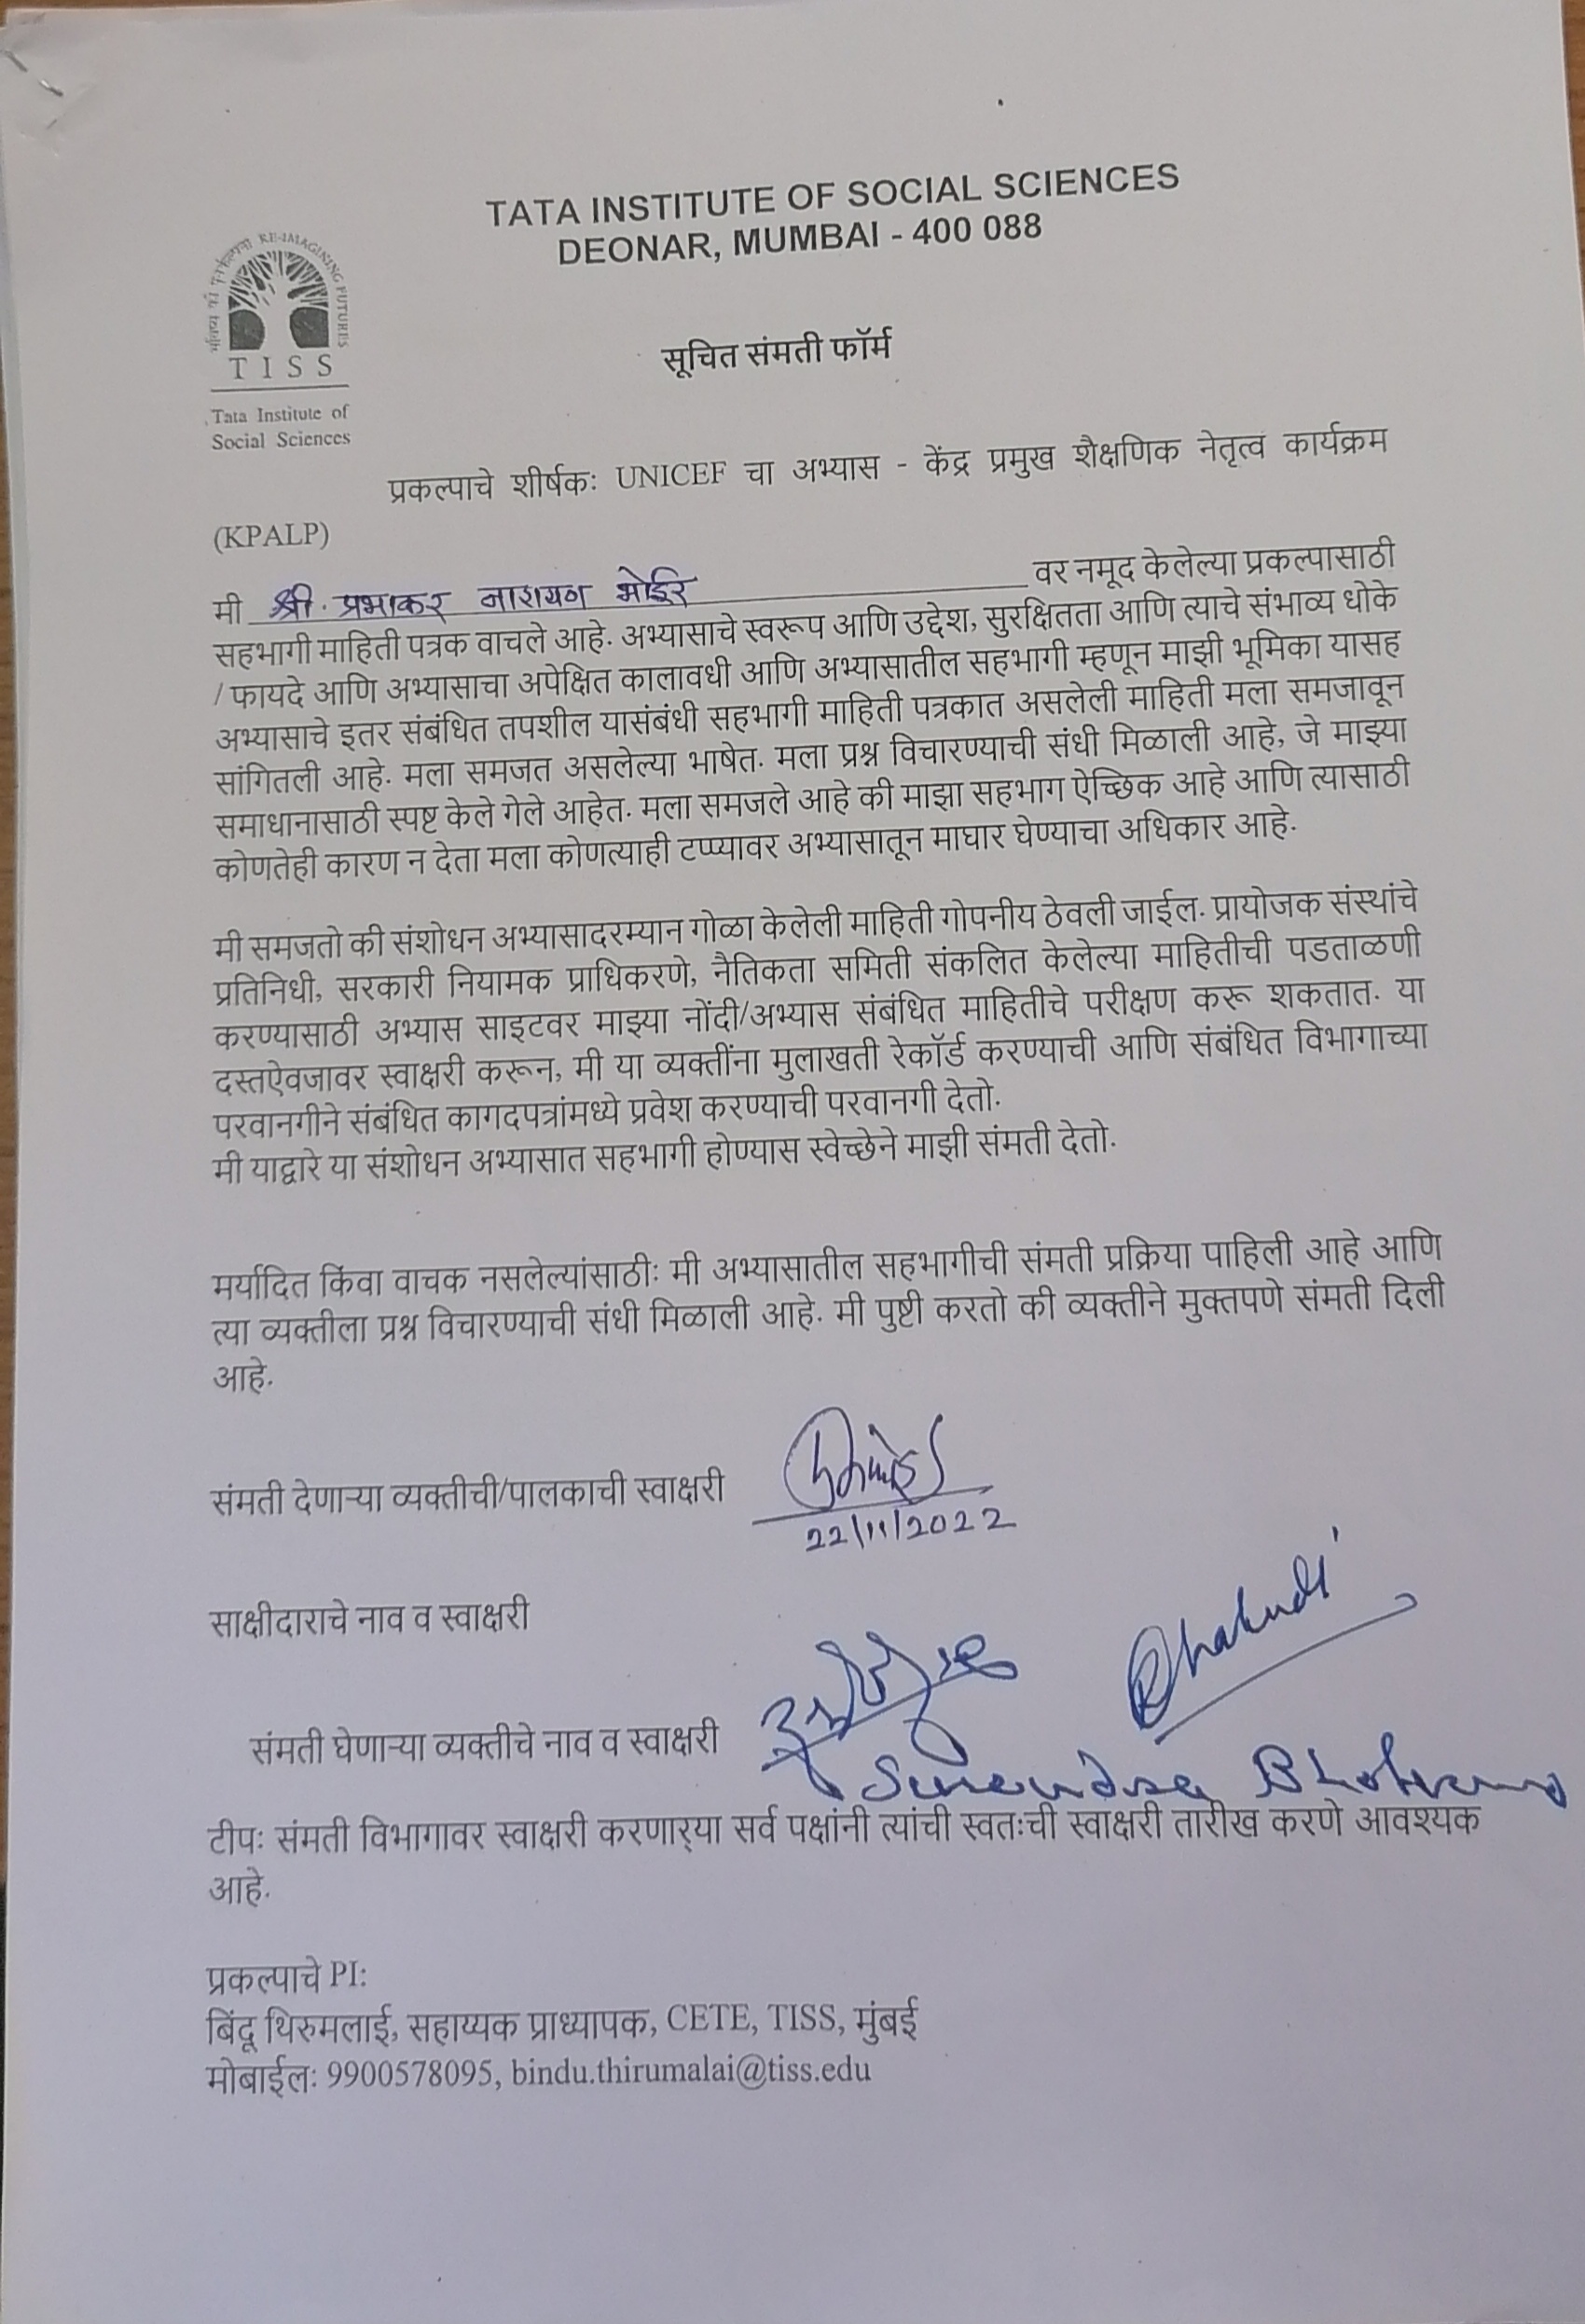 TATA INSTITUTE OF SOCIAL SCIENCES
DEONAR, MUMBAI - 400 088
RE-IMAGINING FUTURES
T I S S
Tata Institute of
Social Sciences
सूचित संमती फॉर्म
प्रकल्पाचे शीर्षकः UNICEF चा अभ्यास - केंद्र प्रमुख शैक्षणिक नेतृत्व कार्यक्रम
(KPALP)
मी श्री. प्रभाकर नारायण भोईर वर नमूद केलेल्या प्रकल्पासाठी
सहभागी माहिती पत्रक वाचले आहे. अभ्यासाचे स्वरूप आणि उद्देश, सुरक्षितता आणि त्याचे संभाव्य धोके
/ फायदे आणि अभ्यासाचा अपेक्षित कालावधी आणि अभ्यासातील सहभागी म्हणून माझी भूमिका यासह
अभ्यासाचे इतर संबंधित तपशील यासंबंधी सहभागी माहिती पत्रकात असलेली माहिती मला समजावून
सांगितली आहे. मला समजत असलेल्या भाषेत. मला प्रश्न विचारण्याची संधी मिळाली आहे, जे माझ्या
समाधानासाठी स्पष्ट केले गेले आहेत. मला समजले आहे की माझा सहभाग ऐच्छिक आहे आणि त्यासाठी
कोणतेही कारण न देता मला कोणत्याही टप्प्यावर अभ्यासातून माघार घेण्याचा अधिकार आहे.
मी समजतो की संशोधन अभ्यासादरम्यान गोळा केलेली माहिती गोपनीय ठेवली जाईल. प्रायोजक संस्थांचे
प्रतिनिधी, सरकारी नियामक प्राधिकरणे, नैतिकता समिती संकलित केलेल्या माहितीची पडताळणी
करण्यासाठी अभ्यास साइटवर माझ्या नोंदी/अभ्यास संबंधित माहितीचे परीक्षण करू शकतात. या
दस्तऐवजावर स्वाक्षरी करून, मी या व्यक्तींना मुलाखती रेकॉर्ड करण्याची आणि संबंधित विभागाच्या
परवानगीने संबंधित कागदपत्रांमध्ये प्रवेश करण्याची परवानगी देतो.
मी याद्वारे या संशोधन अभ्यासात सहभागी होण्यास स्वेच्छेने माझी संमती देतो.
मर्यादित किंवा वाचक नसलेल्यांसाठीः मी अभ्यासातील सहभागीची संमती प्रक्रिया पाहिली आहे आणि
त्या व्यक्तीला प्रश्न विचारण्याची संधी मिळाली आहे. मी पुष्टी करतो की व्यक्तीने मुक्तपणे संमती दिली
आहे.
संमती देणाऱ्या व्यक्तीची/पालकाची स्वाक्षरी
22/11/2022
साक्षीदाराचे नाव व स्वाक्षरी
संमती घेणाऱ्या व्यक्तीचे नाव व स्वाक्षरी
टीपः संमती विभागावर स्वाक्षरी करणाऱ्या सर्व पक्षांनी त्यांची स्वतःची स्वाक्षरी तारीख करणे आवश्यक
आहे.
प्रकल्पाचे PI:
बिंदू थिरुमलाई, सहाय्यक प्राध्यापक, CETE, TISS, मुंबई
मोबाईलः 9900578095, bindu.thirumalai@tiss.edu